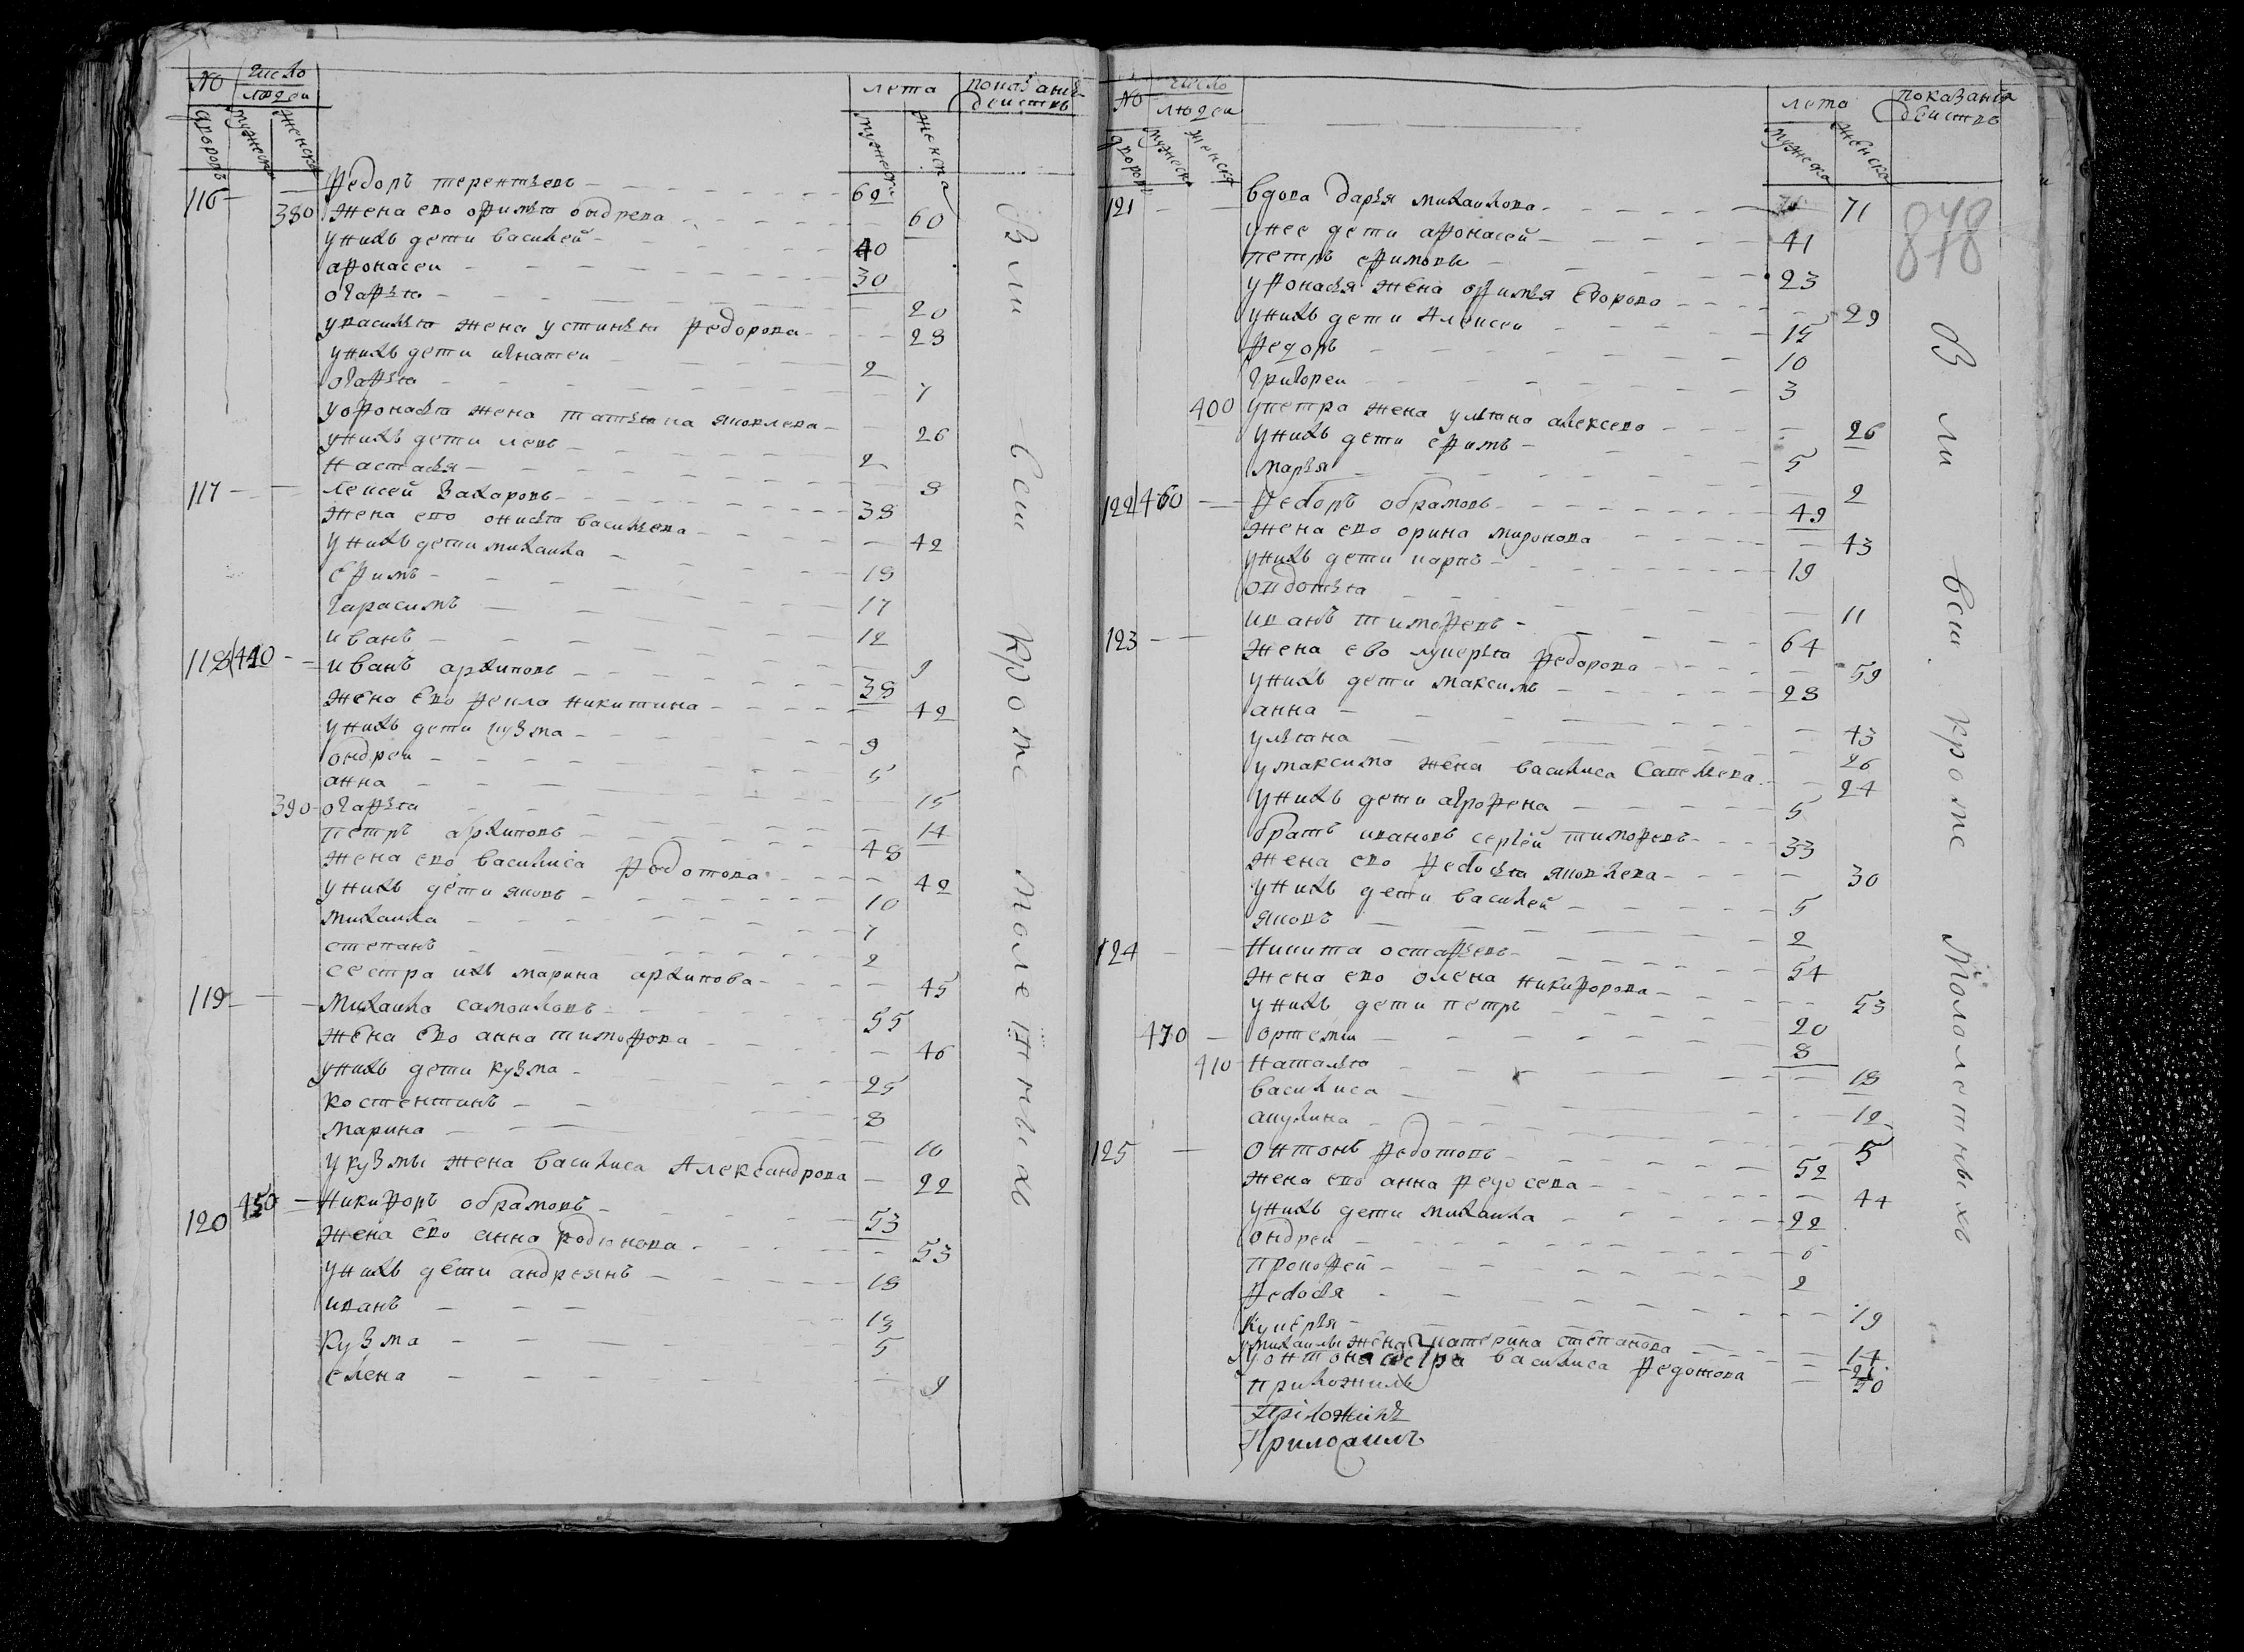 No число людеи лета показание
деиство
дворовъ мужеска женска мужеска женска
116 Федоръ терентьевъ 62
380 жена ево офимья ондрева 60
у нихъ дети василей 40
афонасеи 30
огафья 20
у василья жена устинья федорова 28
у нихъ дети игнатеи 2
огафья 7
у офонасья жена татьяна яковлева 26
у нихъ дети левъ 2
настасья 8
117 Лексей Захаровъ 38
жена ево онисья васильева 42
у нихъ дети михаила 19
Ефимъ 17
Гарасимъ 12
иванъ 9
118 440 иванъ архиповъ 38
жена ево фекла никитина 42
у нихъ дети кузма 9
ондреи 5
анна 15
390 огафья 14
петръ архиповъ 48
жена ево василиса федотова 42
у нихъ дети яковъ 10
михаила 7
степанъ 2
сестра ихъ марина архипова 45
119 Михаила самоиловъ 55
жена ево анна тимофова 46
у нихъ дети кузма 25
костентинъ 8
марина 10
у кузмы жена василиса Александрова 22
120 450 Никифоръ обрамовъ 53
жена ево анна родионова 53
у нихъ дети андреянъ 18
иванъ 13
кузма 5
елена 9
Были Все Кроме Молетныхъ
No число людеи лета показания
деиство
дворовъ мужеска женска мужеска женска
878
121 вдова дарья михаилова 71
у нее дети афонасей 41
петръ ефимовы 23
у фонасья жена офимья Егорова 29
у нихъ дети Алексеи 15
федоръ 10
григореи 3
400 у петра жена ульяна алексева 26
у нихъ дети ефимъ 5
марья 2
122 460 Федоръ обрамовъ 49
жена ево орина миронова 43
у нихъ дети карпъ 19
овдотья 11
123 иванъ тимофевъ 64
жена ево лукерья федорова 59
у нихъ дети максимъ 28
анна 43
ульяна 26
у максима жена василиса Савельева 24
у нихъ дети агрофена 5
братъ ивановъ сергей тимофевъ 33
жена ево федосья яковлева 30
у нихъ дети василей 5
яковъ 2
124 Никита остафьевъ 54
жена ево олена никифорова 53
у нихъ дети петръ 20
470 ортемеи 8
410 наталья 18
василиса 12
акулина 5
125 онтонъ федотовъ 52
жена ево анна федосева 44
у нихъ дети михаила 22
ондреи 6
прокофей 2
федосья 19
лукерья 14
у михаилы жена катерина степанова 21
у онтона сестра василиса федотова 50
приложилъ
Приложилъ
Приложилъ
Были все кроме Малолетныхъ